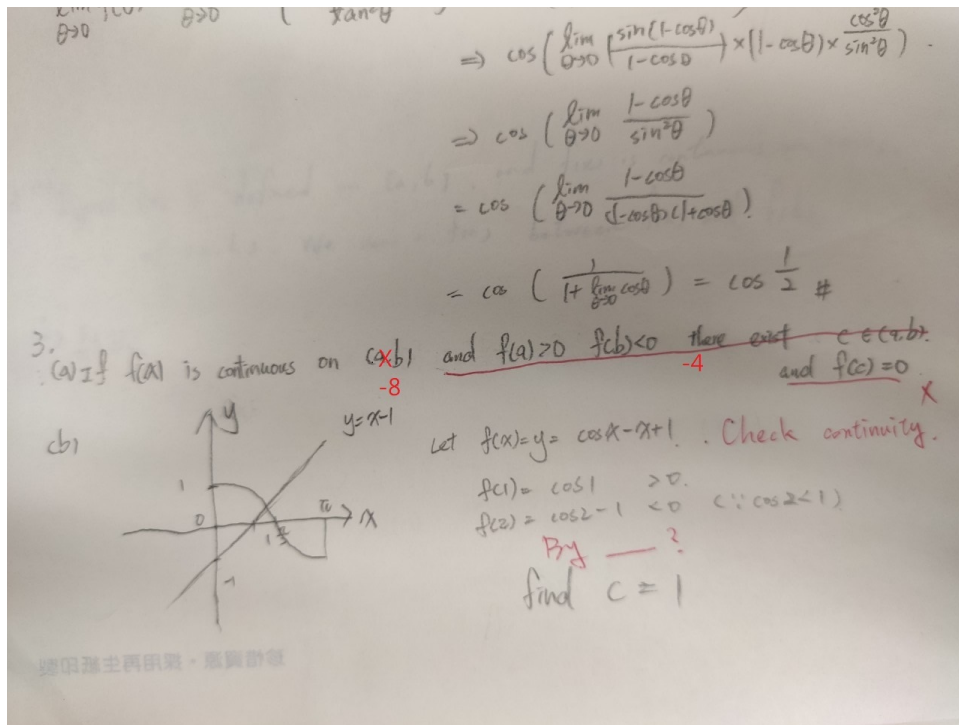 θ→0 θ→0 tan²θ
⇒ cos ( lim θ→0 ( sin(1-cosθ) / 1-cosθ ) × (1-cosθ) × cos²θ / sin²θ ) .
⇒ cos ( lim θ→0 1-cosθ / sin²θ )
= cos ( lim θ→0 1-cosθ / (1-cosθ)(1+cosθ) ) .
= cos ( 1 / 1+ lim θ→0 cosθ ) = cos 1/2 #
3.
(a) If f(x) is continuous on (a,b) and f(a)>0 f(b)<0 there exist c ∈ (a,b).
x
-8
-4
and f(c)=0
X
(b)
y
y=x-1
1
0
1
π/2
π
x
-1
Let f(x)=y= cosx-x+1 . Check continuity.
f(1) = cos1 >0.
f(2) = cos2-1 <0 (∵ cos2<1)
By ___ ?
find c = 1
珍惜資源・採用再生紙印製